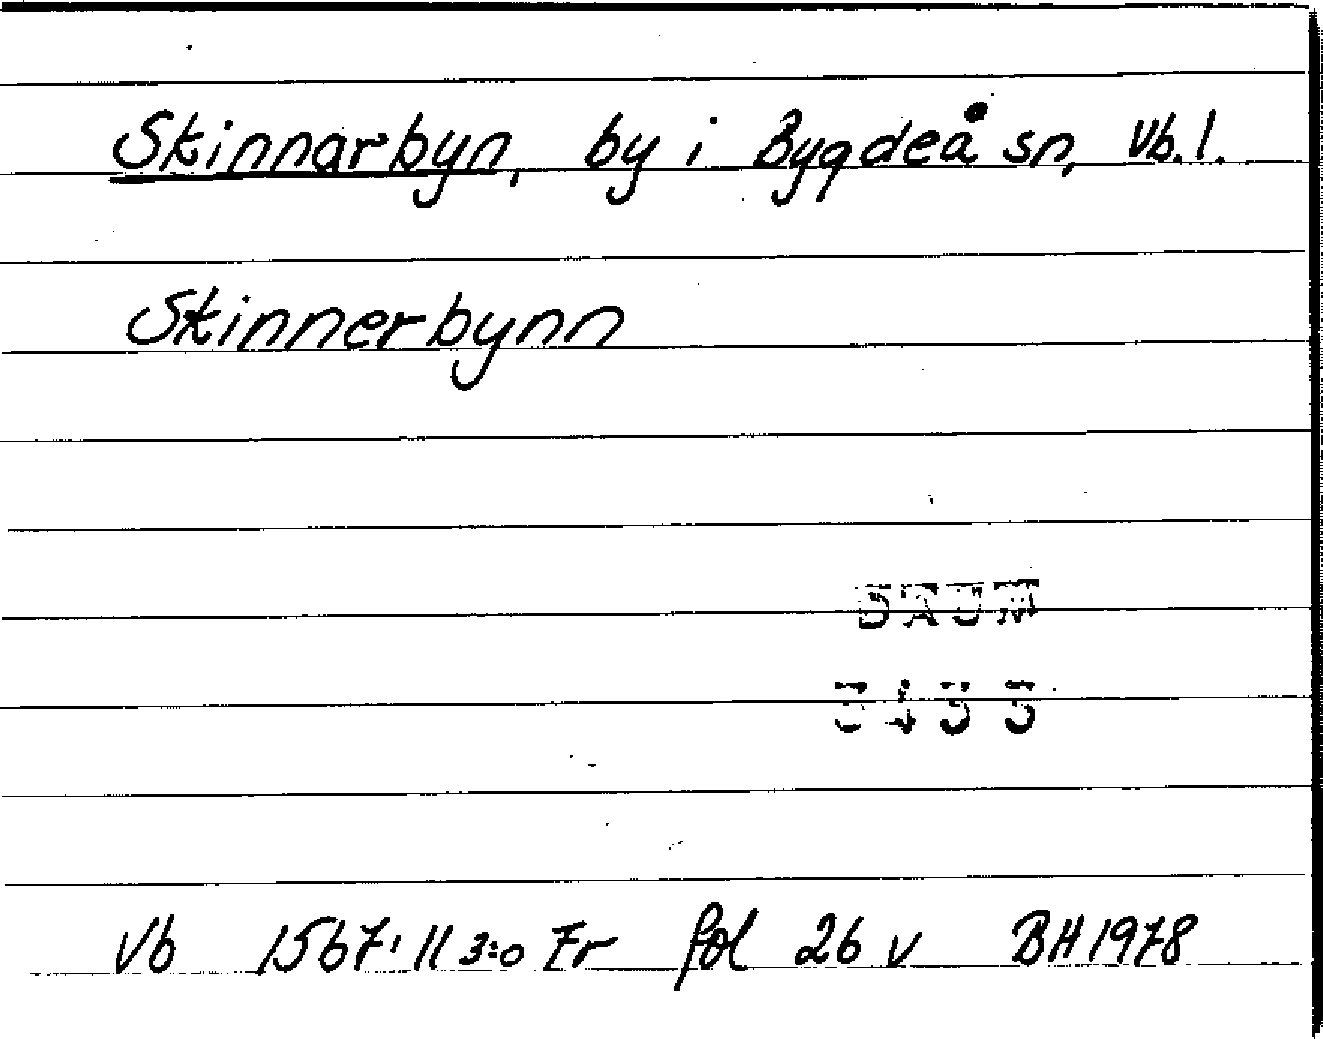 Skinnarbyn, by i Bygdeå sn, Vb. l.
Skinnerbynn
DAUM
Vb 1567:11 3:o Fr fol 26 v BH 1978